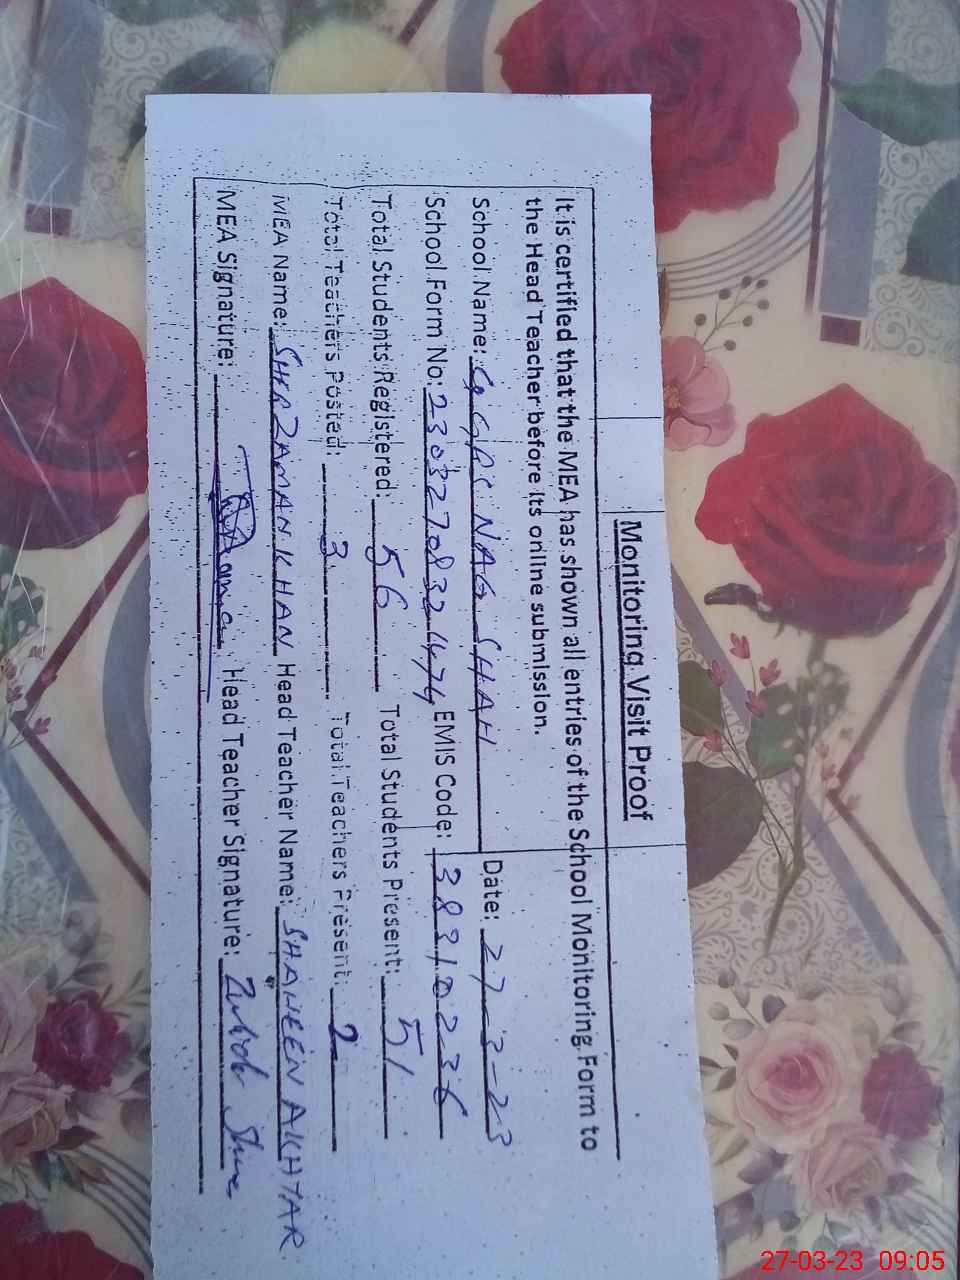 Monitoring Visit Proof
It is certified that the MEA has shown all entries of the School Monitoring Form to
the Head Teacher before its online submission.
School Name: GGPS NAG SHAH Date: 27-3-23
School Form No: 230327083241474 EMIS Code: 38310236
Total Students Registered: 56 Total Students Present: 51
Total Teachers Posted: 3 Total Teachers Present: 2
MEA Name: SHER ZAMAN KHAN Head Teacher Name: SHAHEEN AKHTAR
MEA Signature: Head Teacher Signature:
27-03-23 09:05